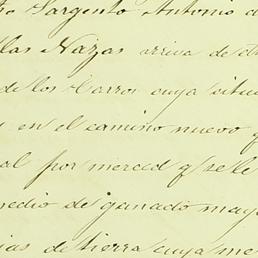 Sargento Antonio
las Nazas arriva de
de los Carros cuya situa
en el camino nuevo y
al por merced q.e se le
medio de ganado mayo
ias de tierra cuya me